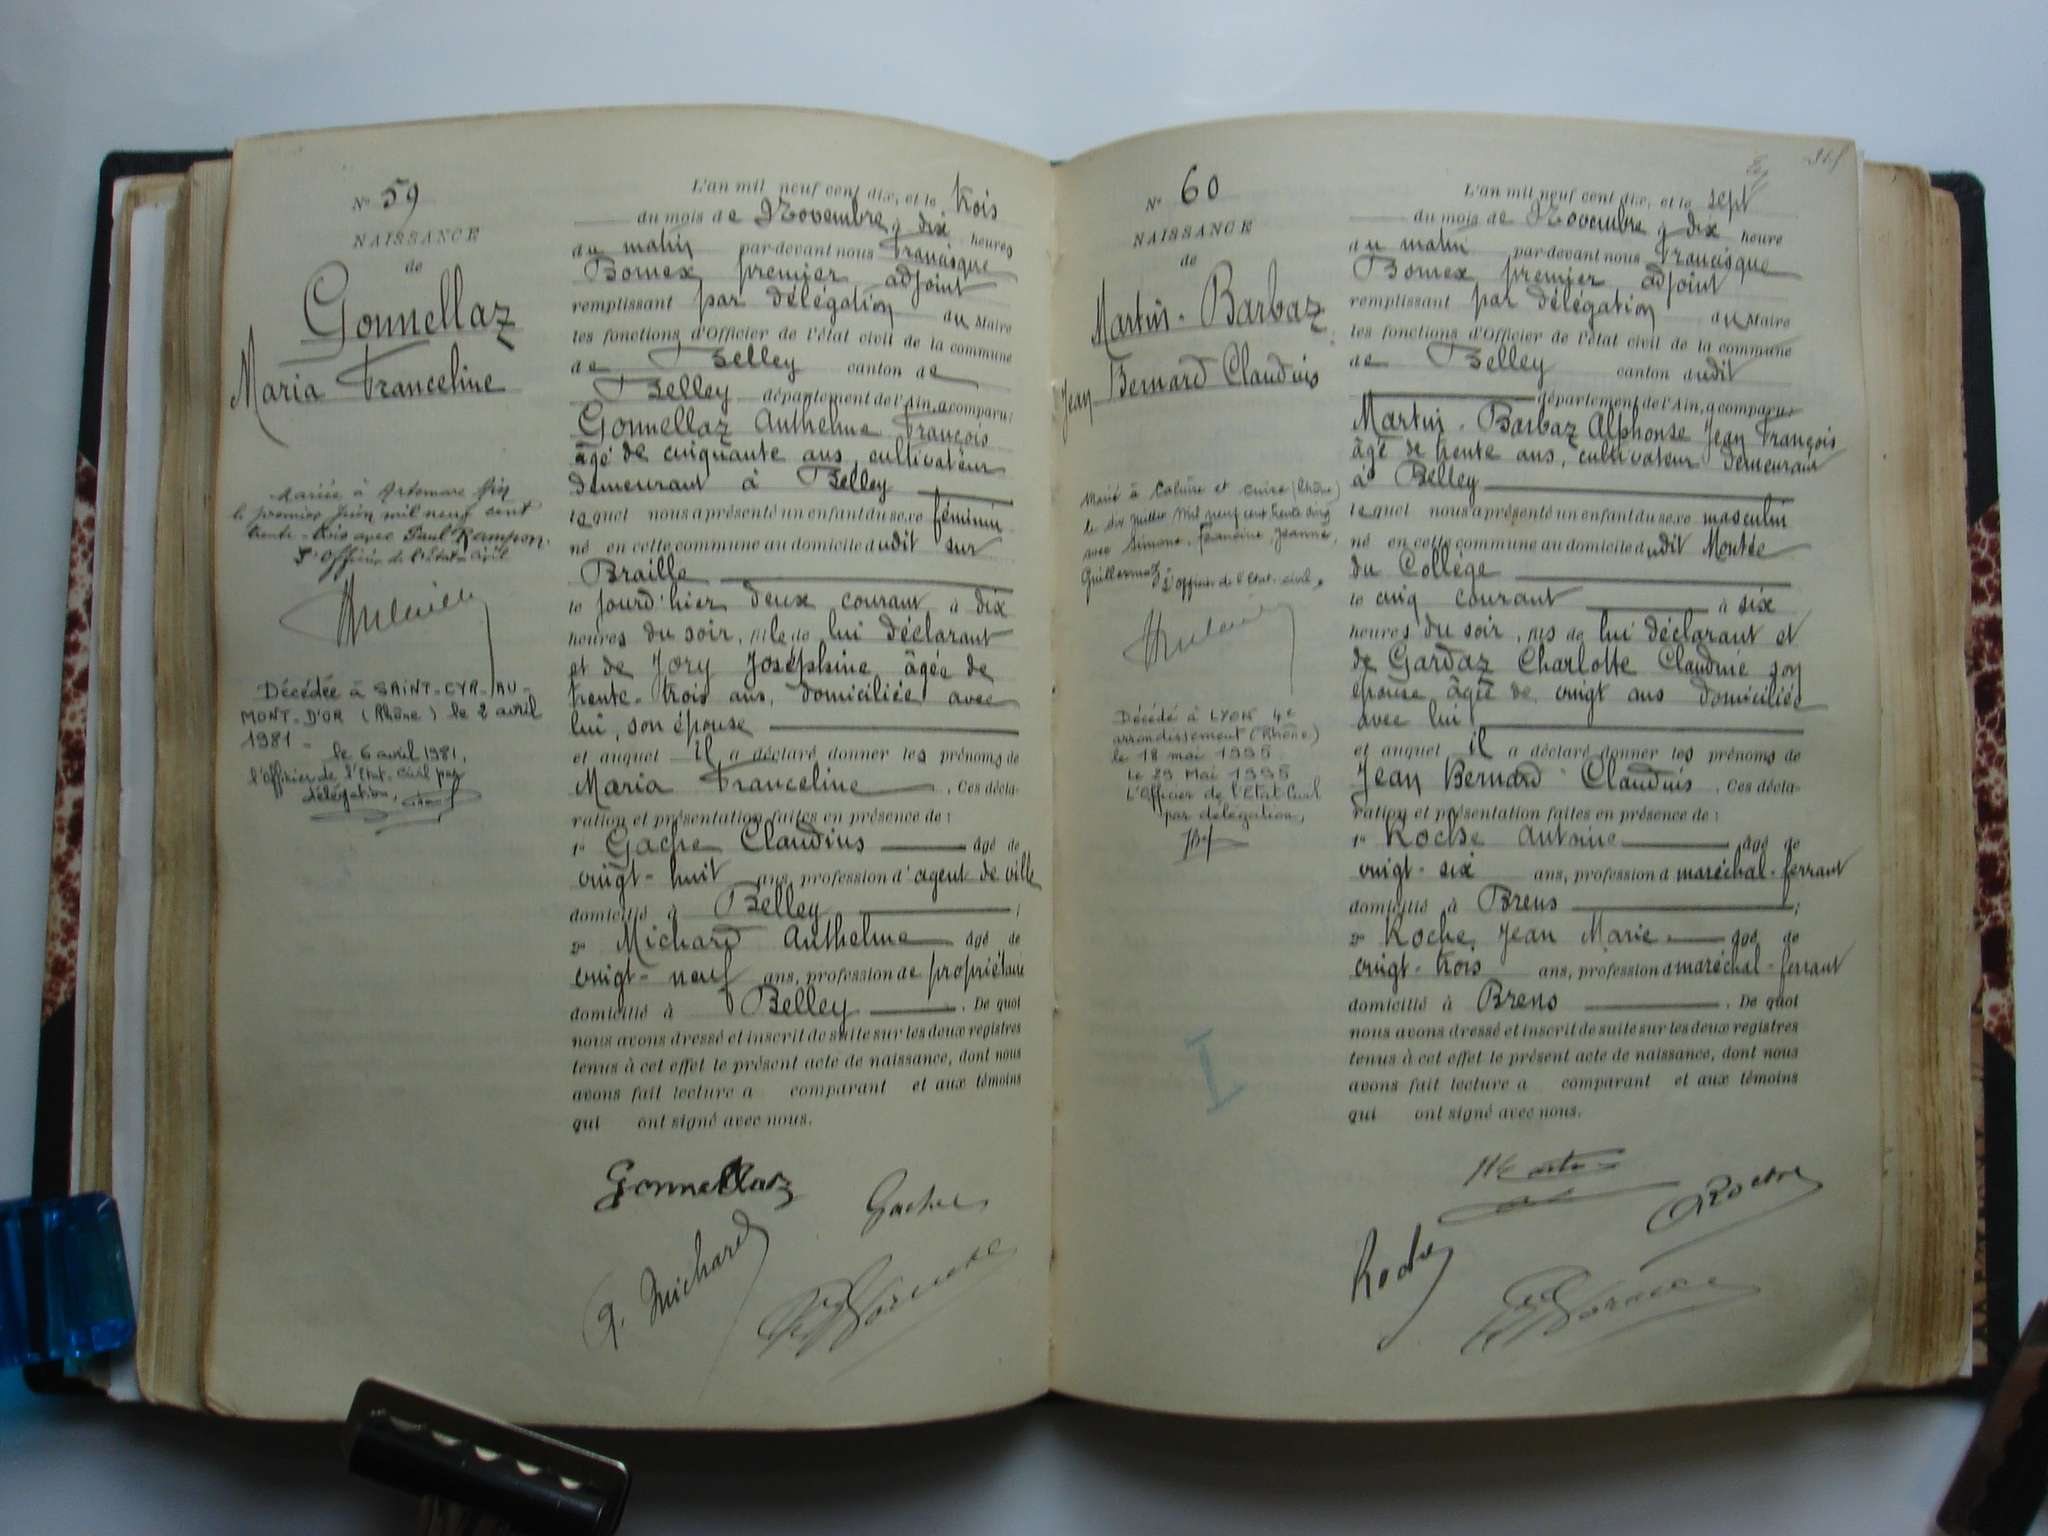 N° 59
NAISSANCE
de
Gonnellaz
Maria Franceline
Mariée à Artemare Ain
le premier juin mil neuf cent
trente-trois avec Paul Rampon.
L'Officier de l'Etat-civil
Décédée à SAINT-CYR-AU-
MONT-D'OR (Rhône) le 2 avril
1981 -
le 6 avril 1981,
l'Officier de l'Etat-civil par
délégation,
L'an mil neuf cent dix, et le trois
du mois de Novembre à dix heures
du matin par-devant nous Francisque
Bornex premier adjoint
remplissant par délégation du Maire
les fonctions d'Officier de l'état civil de la commune
de Belley canton de
Belley département de l'Ain, a comparu:
Gonnellaz Anthelme François
âgé de cinquante ans, cultivateur
demeurant à Belley
lequel nous a présenté un enfant du sexe féminin
né en cette commune au domicile dudit sur
Braille
le jourd'hier deux courant à dix
heures du soir, fille de lui déclarant
et de Jory Joséphine âgée de
trente-trois ans, domiciliée avec
lui, son épouse
et auquel il a déclaré donner les prénoms de
Maria Franceline. Ces décla-
ration et présentation faites en présence de:
1° Gache Claudius âgé de
vingt-huit ans, profession d'agent de ville
domicilié à Belley;
2° Michard Anthelme âgé de
vingt-neuf ans, profession de propriétaire
domicilié à Belley. De quoi
nous avons dressé et inscrit de suite sur les deux registres
tenus à cet effet le présent acte de naissance, dont nous
avons fait lecture a comparant et aux témoins
qui ont signé avec nous.
Gonnellaz
Gache
A. Michard
N° 60
NAISSANCE
de
Martin-Barbaz
Jean Bernard Claudius
Marié à Caluire et Cuire (Rhône)
le six juillet mil neuf cent trente cinq
avec Simone, Francine, Jeanne,
Guillermoz. L'officier de l'Etat-civil,
Décédé à LYON 4e
arrondissement (Rhône)
le 18 mai 1995
Le 29 Mai 1995
L'Officier de l'Etat Civil
par délégation,
I
L'an mil neuf cent dix, et le sept
du mois de Novembre à dix heure
du matin par-devant nous Francisque
Bornex premier adjoint
remplissant par délégation du Maire
les fonctions d'Officier de l'état civil de la commune
de Belley canton dudit
département de l'Ain, a comparu:
Martin-Barbaz Alphonse Jean François
âgé de trente ans, cultivateur demeurant
à Belley
lequel nous a présenté un enfant du sexe masculin
né en cette commune au domicile dudit Montée
du Collège
le cinq courant à six
heures du soir, fils de lui déclarant et
de Gardaz Charlotte Claudine son
épouse âgée de vingt ans domiciliée
avec lui
et auquel il a déclaré donner les prénoms de
Jean Bernard Claudius. Ces décla-
ration et présentation faites en présence de:
1° Roche Antoine âgé de
vingt-six ans, profession d maréchal-ferrant
domicilié à Brens;
2° Roche, Jean Marie âgé de
vingt-trois ans, profession d maréchal-ferrant
domicilié à Brens. De quoi
nous avons dressé et inscrit de suite sur les deux registres
tenus à cet effet le présent acte de naissance, dont nous
avons fait lecture a comparant et aux témoins
qui ont signé avec nous.
Roche